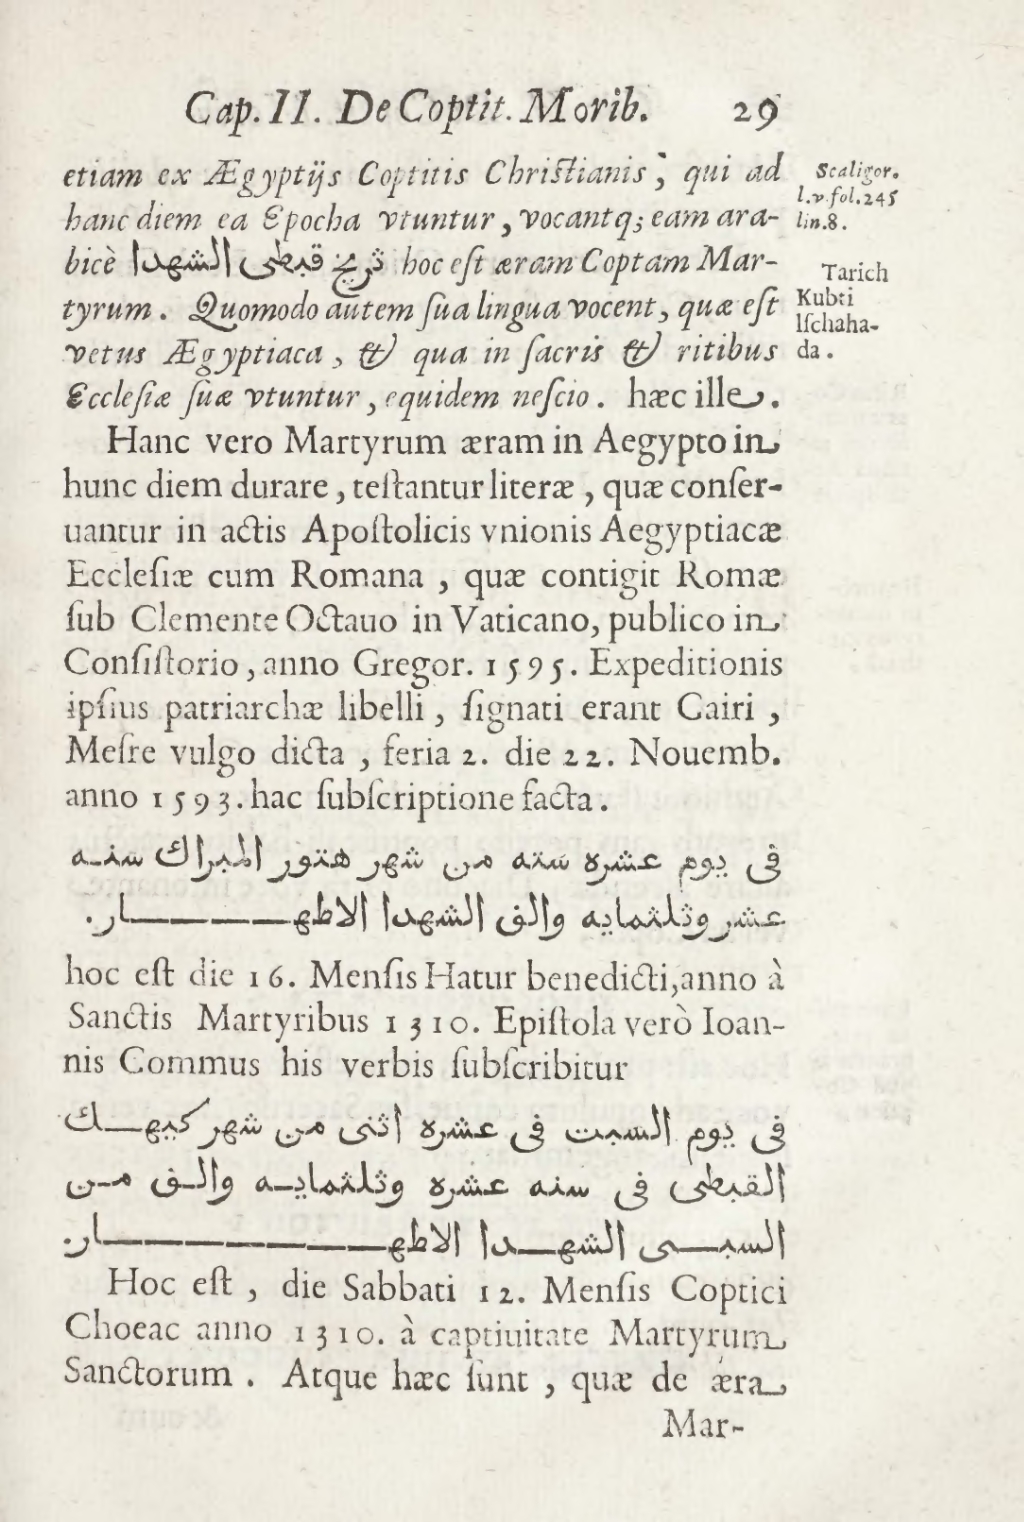 Cap. II. De Coptit. Morib. 29
etiam ex Ægyptijs Coptitis Chriſtianis, qui ad
hanc diem ea Epocha vtuntur, vocantq; eam ara-
bicè تريخ قبطى الشهدا hoc eſt æram Coptam Mar-
tyrum. Quomodo autem ſua lingua vocent, quæ eſt
vetus Ægyptiaca, & qua in ſacris & ritibus
Eccleſiæ ſuæ vtuntur, equidem neſcio. hæc ille.
Scaligor.
l.v.fol.245
lin.8.
Tarich
Kubti
lſchaha-
da.
Hanc vero Martyrum æram in Aegypto in
hunc diem durare, teſtantur literæ, quæ conſer-
uantur in actis Apoſtolicis vnionis Aegyptiacæ
Eccleſiæ cum Romana, quæ contigit Romæ
ſub Clemente Octauo in Vaticano, publico in
Conſiſtorio, anno Gregor. 1595. Expeditionis
ipſius patriarchæ libelli, ſignati erant Cairi,
Meſre vulgo dicta, feria 2. die 22. Nouemb.
anno 1593. hac ſubſcriptione facta.
فى يوم عشره سته من شهر هتور المبراك سنه
عشر وثلثمايه والف الشهدا الاطهار.
hoc eſt die 16. Menſis Hatur benedicti, anno à
Sanctis Martyribus 1310. Epiſtola verò Ioan-
nis Commus his verbis ſubſcribitur
فى يوم السبت فى عشره اثنى من شهر كيهك
القبطى فى سنه عشره وثلثمايه والف من
السبى الشهدا الاطهار.
Hoc eſt, die Sabbati 12. Menſis Coptici
Choeac anno 1310. à captiuitate Martyrum
Sanctorum. Atque hæc ſunt, quæ de æra
Mar-